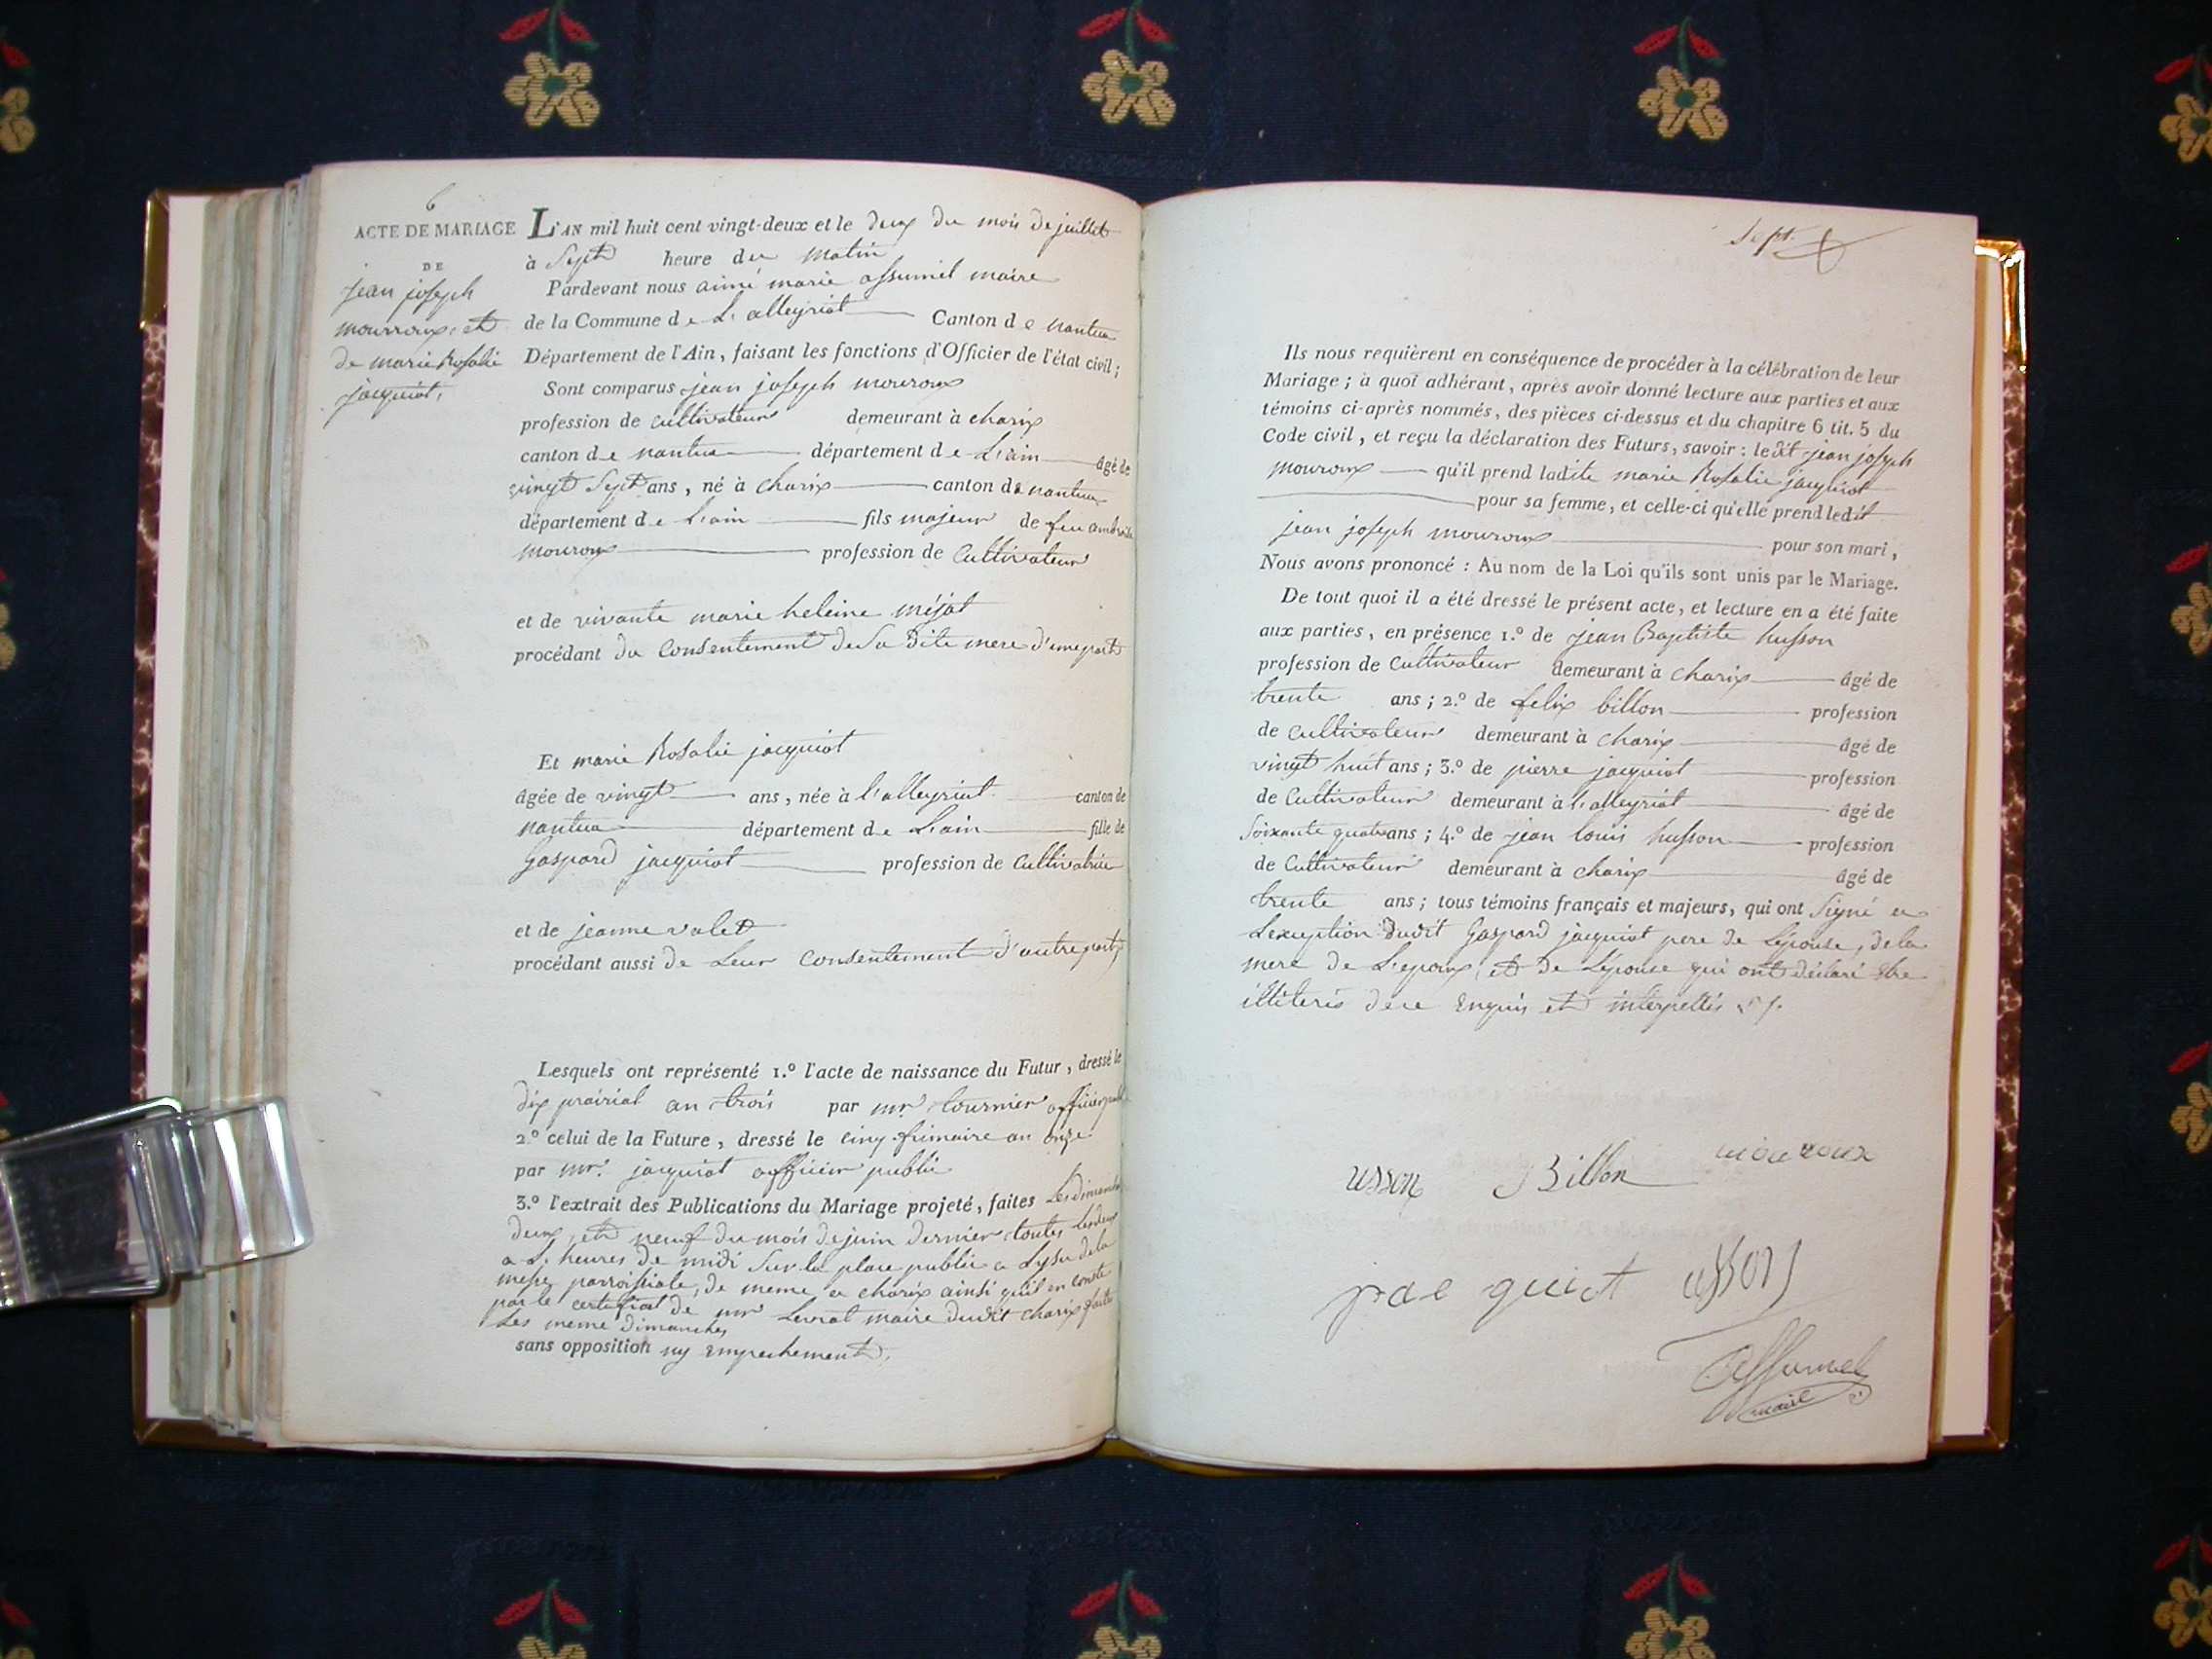 6
ACTE DE MARIAGE
DE
jean joseph
mourroux et
de marie Rosalie
jacquiot,
L'AN mil huit cent vingt-deux et le deux du mois de juillet
à Sept heure du matin
Pardevant nous aimé marie assumel maire
de la Commune de L'alleyriat Canton de nantua
Département de l'Ain, faisant les fonctions d'Officier de l'état civil;
Sont comparus jean joseph mouroux
profession de cultivateur demeurant à charix
canton de nantua département de L'ain âgé de
vingt Sept ans, né à charix canton de nantua
département de L'ain fils majeur de feu ambroise
mouroux profession de Cultivateur
et de vivante marie heleine méjat
procédant du Consentement de Sa Dite mere d'une part
Et marie Rosalie jacquiot
âgée de vingt ans, née à l'alleyriat canton de
nantua département de L'ain fille de
Gaspard jacquiot profession de Cultivatrice
et de jeanne valet
procédant aussi de Leur Consentement d'autre part,
Lesquels ont représenté 1.º l'acte de naissance du Futur, dressé le
dix prairial an trois par mr. tournier officier public
2.º celui de la Future, dressé le cinq frimaire an onze
par mr. jacquiot officier public
3.º l'extrait des Publications du Mariage projeté, faites Les dimanches
deux et neuf du mois de juin dernier toutes Les deux
a heures de midi Sur la place publique a Lysue de la
messe parroissiale, de meme a charix ainsi qu'il en conste
par le certificat de mr Levrat maire dudit charix faites
Les meme dimanches
sans opposition ny Empechement,
Sept.
Ils nous requièrent en conséquence de procéder à la célébration de leur
Mariage; à quoi adhérant, après avoir donné lecture aux parties et aux
témoins ci-après nommés, des pièces ci-dessus et du chapitre 6 tit. 5 du
Code civil, et reçu la déclaration des Futurs, savoir: ledit jean joseph
mouroux qu'il prend ladite marie Rosalie jacquiot
pour sa femme, et celle-ci qu'elle prend ledit
jean joseph mouroux pour son mari,
Nous avons prononcé: Au nom de la Loi qu'ils sont unis par le Mariage.
De tout quoi il a été dressé le présent acte, et lecture en a été faite
aux parties, en présence 1.º de jean Baptiste husson
profession de Cultivateur demeurant à charix âgé de
trente ans; 2.º de felix billon profession
de cultivateur demeurant à charix âgé de
vingt huit ans; 3.º de pierre jacquiot profession
de Cultivateur demeurant à l'alleyriat âgé de
Soixante quatre ans; 4.º de jean louis husson profession
de Cultivateur demeurant à charix âgé de
trente ans; tous témoins français et majeurs, qui ont Signé a
Lexception dudit Gaspard jacquiot pere de Lépouse, de la
mere de L'epoux, et de Lépouse qui ont déclaré être
illiteris de ce Enquis et interpellés
usson Billon mouroux
jac quiot usson
Assumel
maire